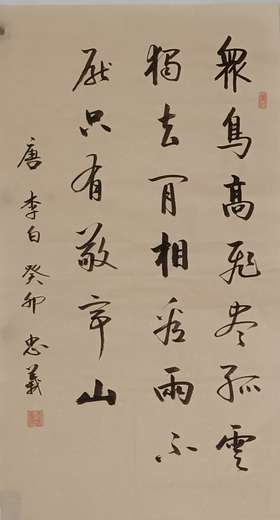 衆鳥高飛尽孤雲
獨去閒相看兩不
厭只有敬亭山
唐李白癸卯忠義